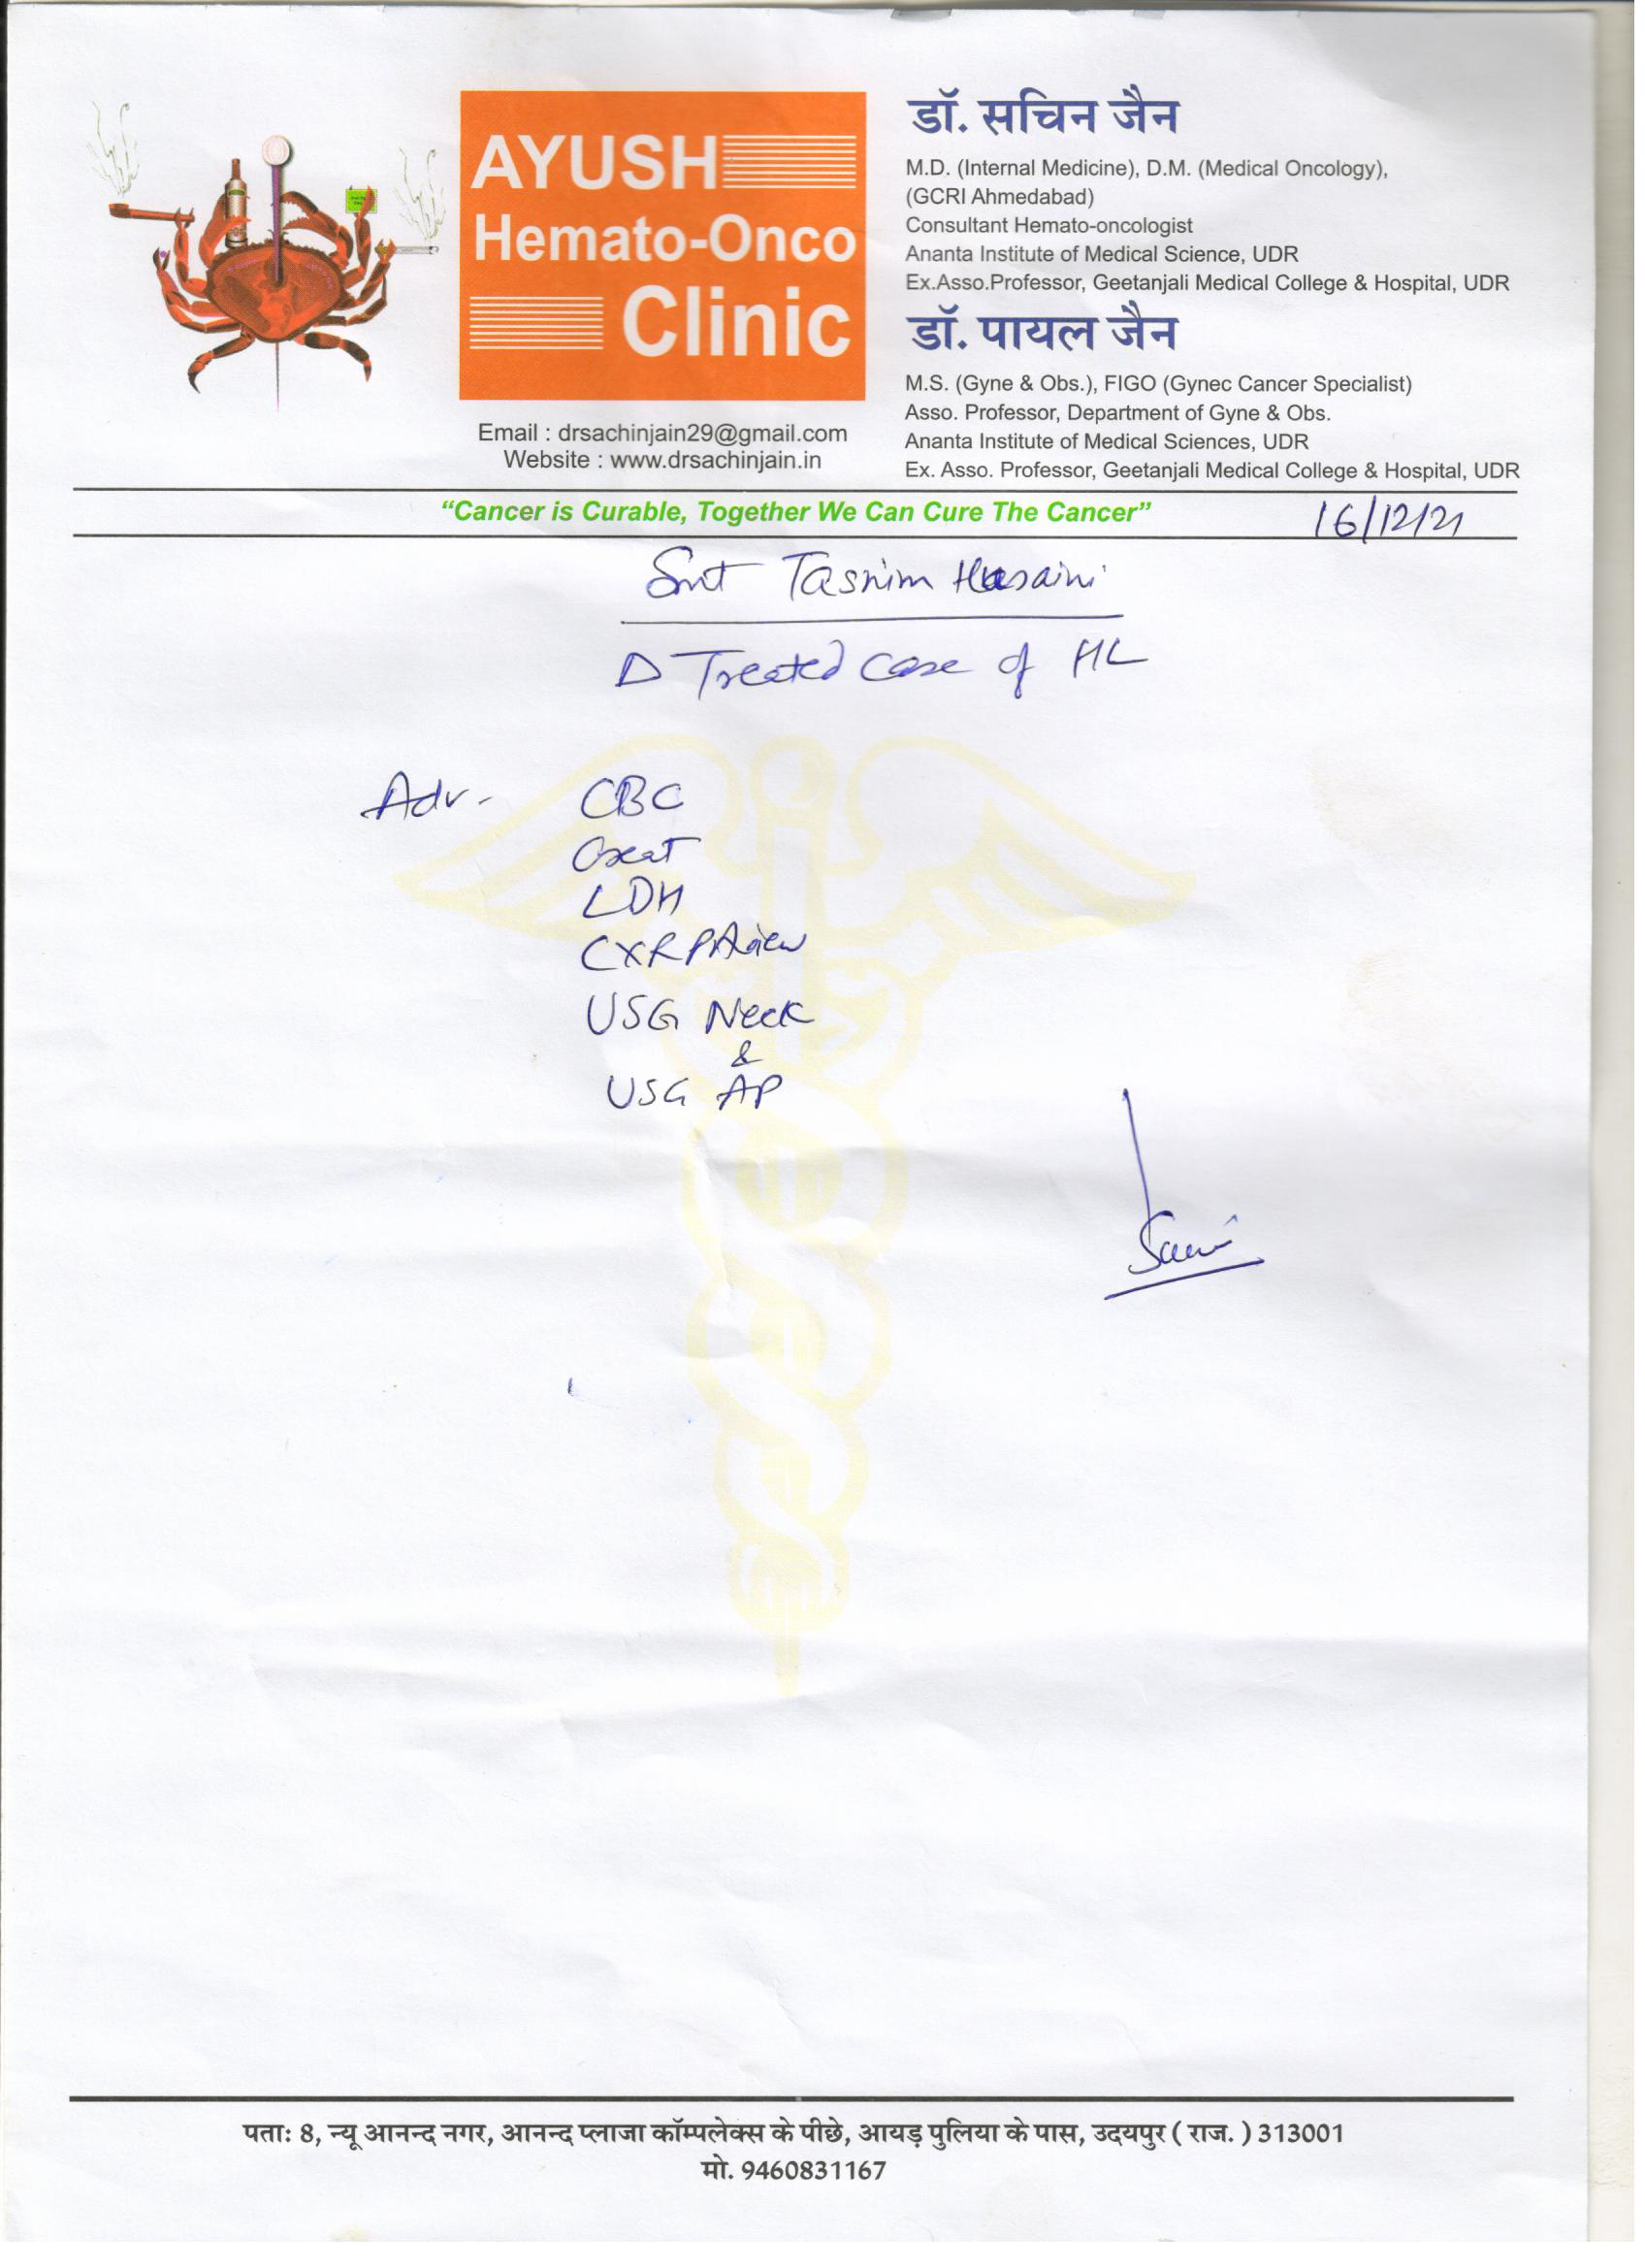 AYUSH
Hemato-Onco
Clinic
Email : drsachinjain29@gmail.com
Website : www.drsachinjain.in
डॉ. सचिन जैन
M.D. (Internal Medicine), D.M. (Medical Oncology),
(GCRI Ahmedabad)
Consultant Hemato-oncologist
Ananta Institute of Medical Science, UDR
Ex.Asso.Professor, Geetanjali Medical College & Hospital, UDR
डॉ. पायल जैन
M.S. (Gyne & Obs.), FIGO (Gynec Cancer Specialist)
Asso. Professor, Department of Gyne & Obs.
Ananta Institute of Medical Sciences, UDR
Ex. Asso. Professor, Geetanjali Medical College & Hospital, UDR
“Cancer is Curable, Together We Can Cure The Cancer” 16/12/21
Smt Tasnim Husaini
D Treated case of HL
Adv- CBC
Creat
LDH
CXR PA view
USG Neck
&
USG AP
पताः 8, न्यू आनन्द नगर, आनन्द प्लाजा कॉम्पलेक्स के पीछे, आयड़ पुलिया के पास, उदयपुर ( राज. ) 313001
मो. 9460831167